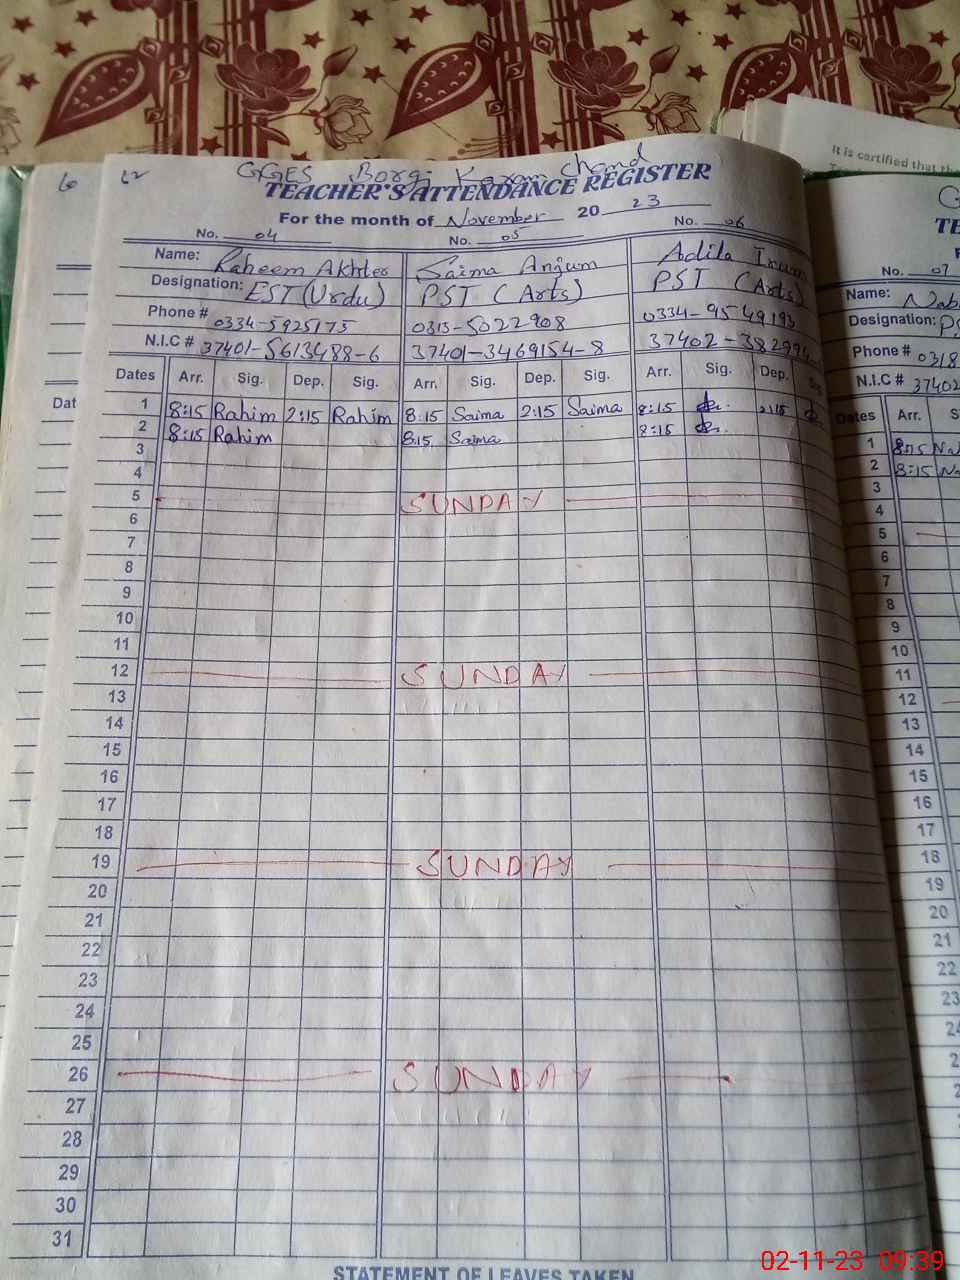 It is certified that the
62
GGES Borgi Karam Chand
TEACHER'S ATTENDANCE REGISTER
For the month of November 2023
No. 04 No. 05 No. 06
Name: Raheem Akhter Saima Anjum Adila Irum
Designation: EST (Urdu) PST (Arts) PST (Arts)
Phone # 0334-5925175 0313-5022908 0334-9549193
N.I.C # 37401-5613488-6 37401-3469154-8 37402-38299
Dates Arr. Sig. Dep. Sig. Arr. Sig. Dep. Sig. Arr. Sig. Dep. Sig.
1 8:15 Rahim 2:15 Rahim 8:15 Saima 2:15 Saima 8:15 2:15
2 8:15 Rahim 8:15 Saima 8:15
3
4
5 SUNDAY
6
7
8
9
10
11
12 SUNDAY
13
14
15
16
17
18
19 SUNDAY
20
21
22
23
24
25
26 SUNDAY
27
28
29
30
31
STATEMENT OF LEAVES TAKEN
Dat
G
TE
F
No. 07
Name: Nab
Designation: PS
Phone # 0318
N.I.C # 37402
Dates Arr. S
1 8:15 Na
2 8:15 Na
3
4
5
6
7
8
9
10
11
12
13
14
15
16
17
18
19
20
21
22
23
24
02-11-23 09:39